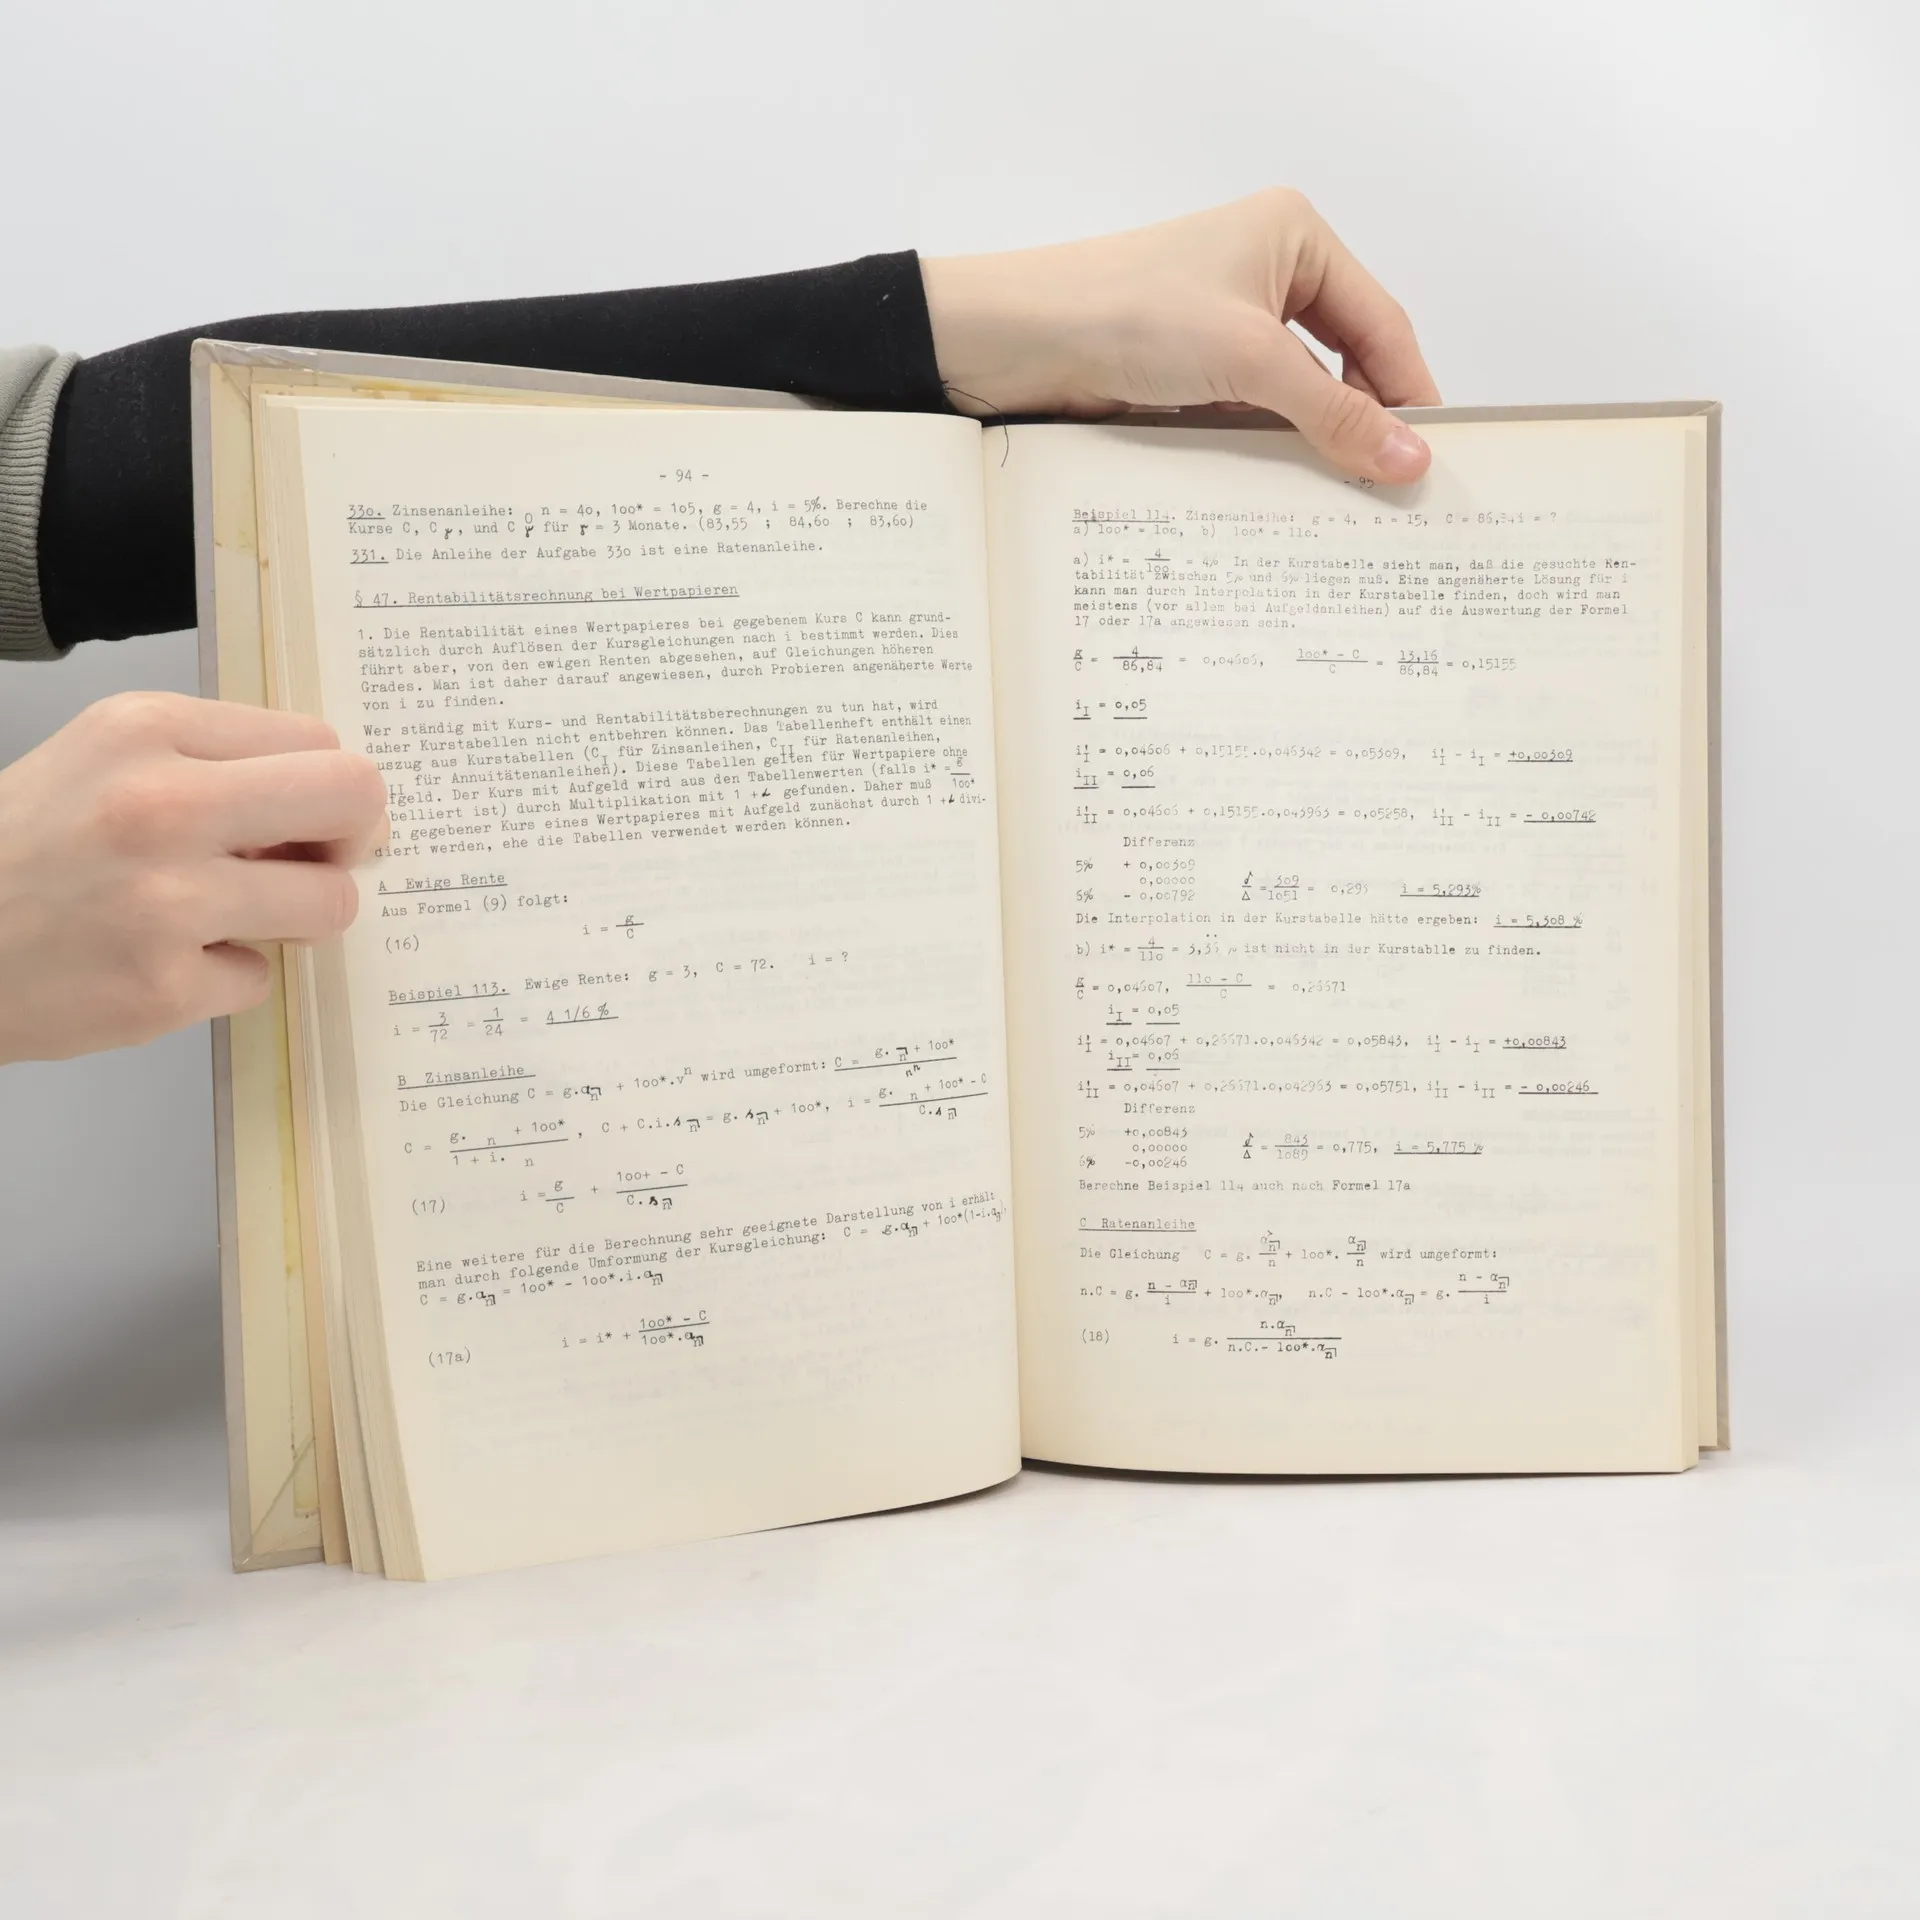 - 94 -
33o. Zinsenanleihe: n = 4o, 1oo* = 1o5, g = 4, i = 5%. Berechne die
Kurse C, C , und C für = 3 Monate. (83,55 ; 84,6o ; 83,6o)
331. Die Anleihe der Aufgabe 33o ist eine Ratenanleihe.
§ 47. Rentabilitätsrechnung bei Wertpapieren
1. Die Rentabilität eines Wertpapieres bei gegebenem Kurs C kann grund-
sätzlich durch Auflösen der Kursgleichungen nach i bestimmt werden. Dies
führt aber, von den ewigen Renten abgesehen, auf Gleichungen höheren
Grades. Man ist daher darauf angewiesen, durch Probieren angenäherte Werte
von i zu finden.
Wer ständig mit Kurs- und Rentabilitätsberechnungen zu tun hat, wird
daher Kurstabellen nicht entbehren können. Das Tabellenheft enthält einen
uszug aus Kurstabellen (C_I für Zinsanleihen, C_II für Ratenanleihen,
II für Annuitätenanleihen). Diese Tabellen gelten für Wertpapiere ohne
fgeld. Der Kurs mit Aufgeld wird aus den Tabellenwerten (falls i* = g/1oo*
belliert ist) durch Multiplikation mit 1 + gefunden. Daher muß
n gegebener Kurs eines Wertpapieres mit Aufgeld zunächst durch 1 + divi-
diert werden, ehe die Tabellen verwendet werden können.
A Ewige Rente
Aus Formel (9) folgt:
(16) i = g/C
Beispiel 113. Ewige Rente: g = 3, C = 72. i = ?
i = 3/72 = 1/24 = 4 1/6 %
B Zinsanleihe
Die Gleichung C = g.a_n + 1oo*.v^n wird umgeformt: C = g. n + 1oo*
C = g. n + 1oo* / 1 + i. n , C + C.i.s_n = g.s_n + 1oo*, i = g. n + 1oo* - C / C.s_n
(17) i = g/C + 1oo+ - C / C.s_n
Eine weitere für die Berechnung sehr geeignete Darstellung von i erhält
man durch folgende Umformung der Kursgleichung: C = g.a_n + 1oo*(1-i.a_n),
C = g.a_n = 1oo* - 1oo*.i.a_n
(17a) i = i* + 1oo* - C / 1oo*.a_n
- 95
Beispiel 114. Zinsenanleihe: g = 4, n = 15, C = 86, i = ?
a) 1oo* = 1oo, b) 1oo* = 11o.
a) i* = 4/1oo = 4% In der Kurstabelle sieht man, daß die gesuchte Ren-
tabilität zwischen 5% und 6% liegen muß. Eine angenäherte Lösung für i
kann man durch Interpolation in der Kurstabelle finden, doch wird man
meistens (vor allem bei Aufgeldanleihen) auf die Auswertung der Formel
17 oder 17a angewiesen sein.
g/C = 4/86,84 = o,o46o6, 1oo* - C / C = 13,16/86,84 = o,15155
i_I = o,o5
i'_I = o,o46o6 + o,15155.o,o46342 = o,o53o9, i'_I - i_I = +o,oo3o9
i_II = o,o6
i'_II = o,o46o6 + o,15155.o,o43963 = o,o5258, i'_II - i_II = - o,oo742
Differenz
5% + o,oo3o9
o,ooooo
6% - o,oo792
δ/Δ = 3o9/1o51 = o,293 i = 5,293%
Die Interpolation in der Kurstabelle hätte ergeben: i = 5,3o8 %
b) i* = 4/11o = % ist nicht in der Kurstablle zu finden.
g/C = o,o46o7, 11o - C / C = o,26671
i_I = o,o5
i'_I = o,o46o7 + o,26671.o,o46342 = o,o5843, i'_I - i_I = +o,oo843
i_II = o,o6
i'_II = o,o46o7 + o,26671.o,o42963 = o,o5751, i'_II - i_II = - o,oo246
Differenz
5% +o,oo843
o,ooooo
6% -o,oo246
δ/Δ = 843/1o89 = o,775, i = 5,775 %
Berechne Beispiel 114 auch nach Formel 17a
C Ratenanleihe
Die Gleichung C = g. a_n/n + 1oo*. a_n/n wird umgeformt:
n.C = g. n - a_n / i + 1oo*.a_n, n.C - 1oo*.a_n = g. n - a_n / i
(18) i = g. n.a_n / n.C.- 1oo*.a_n